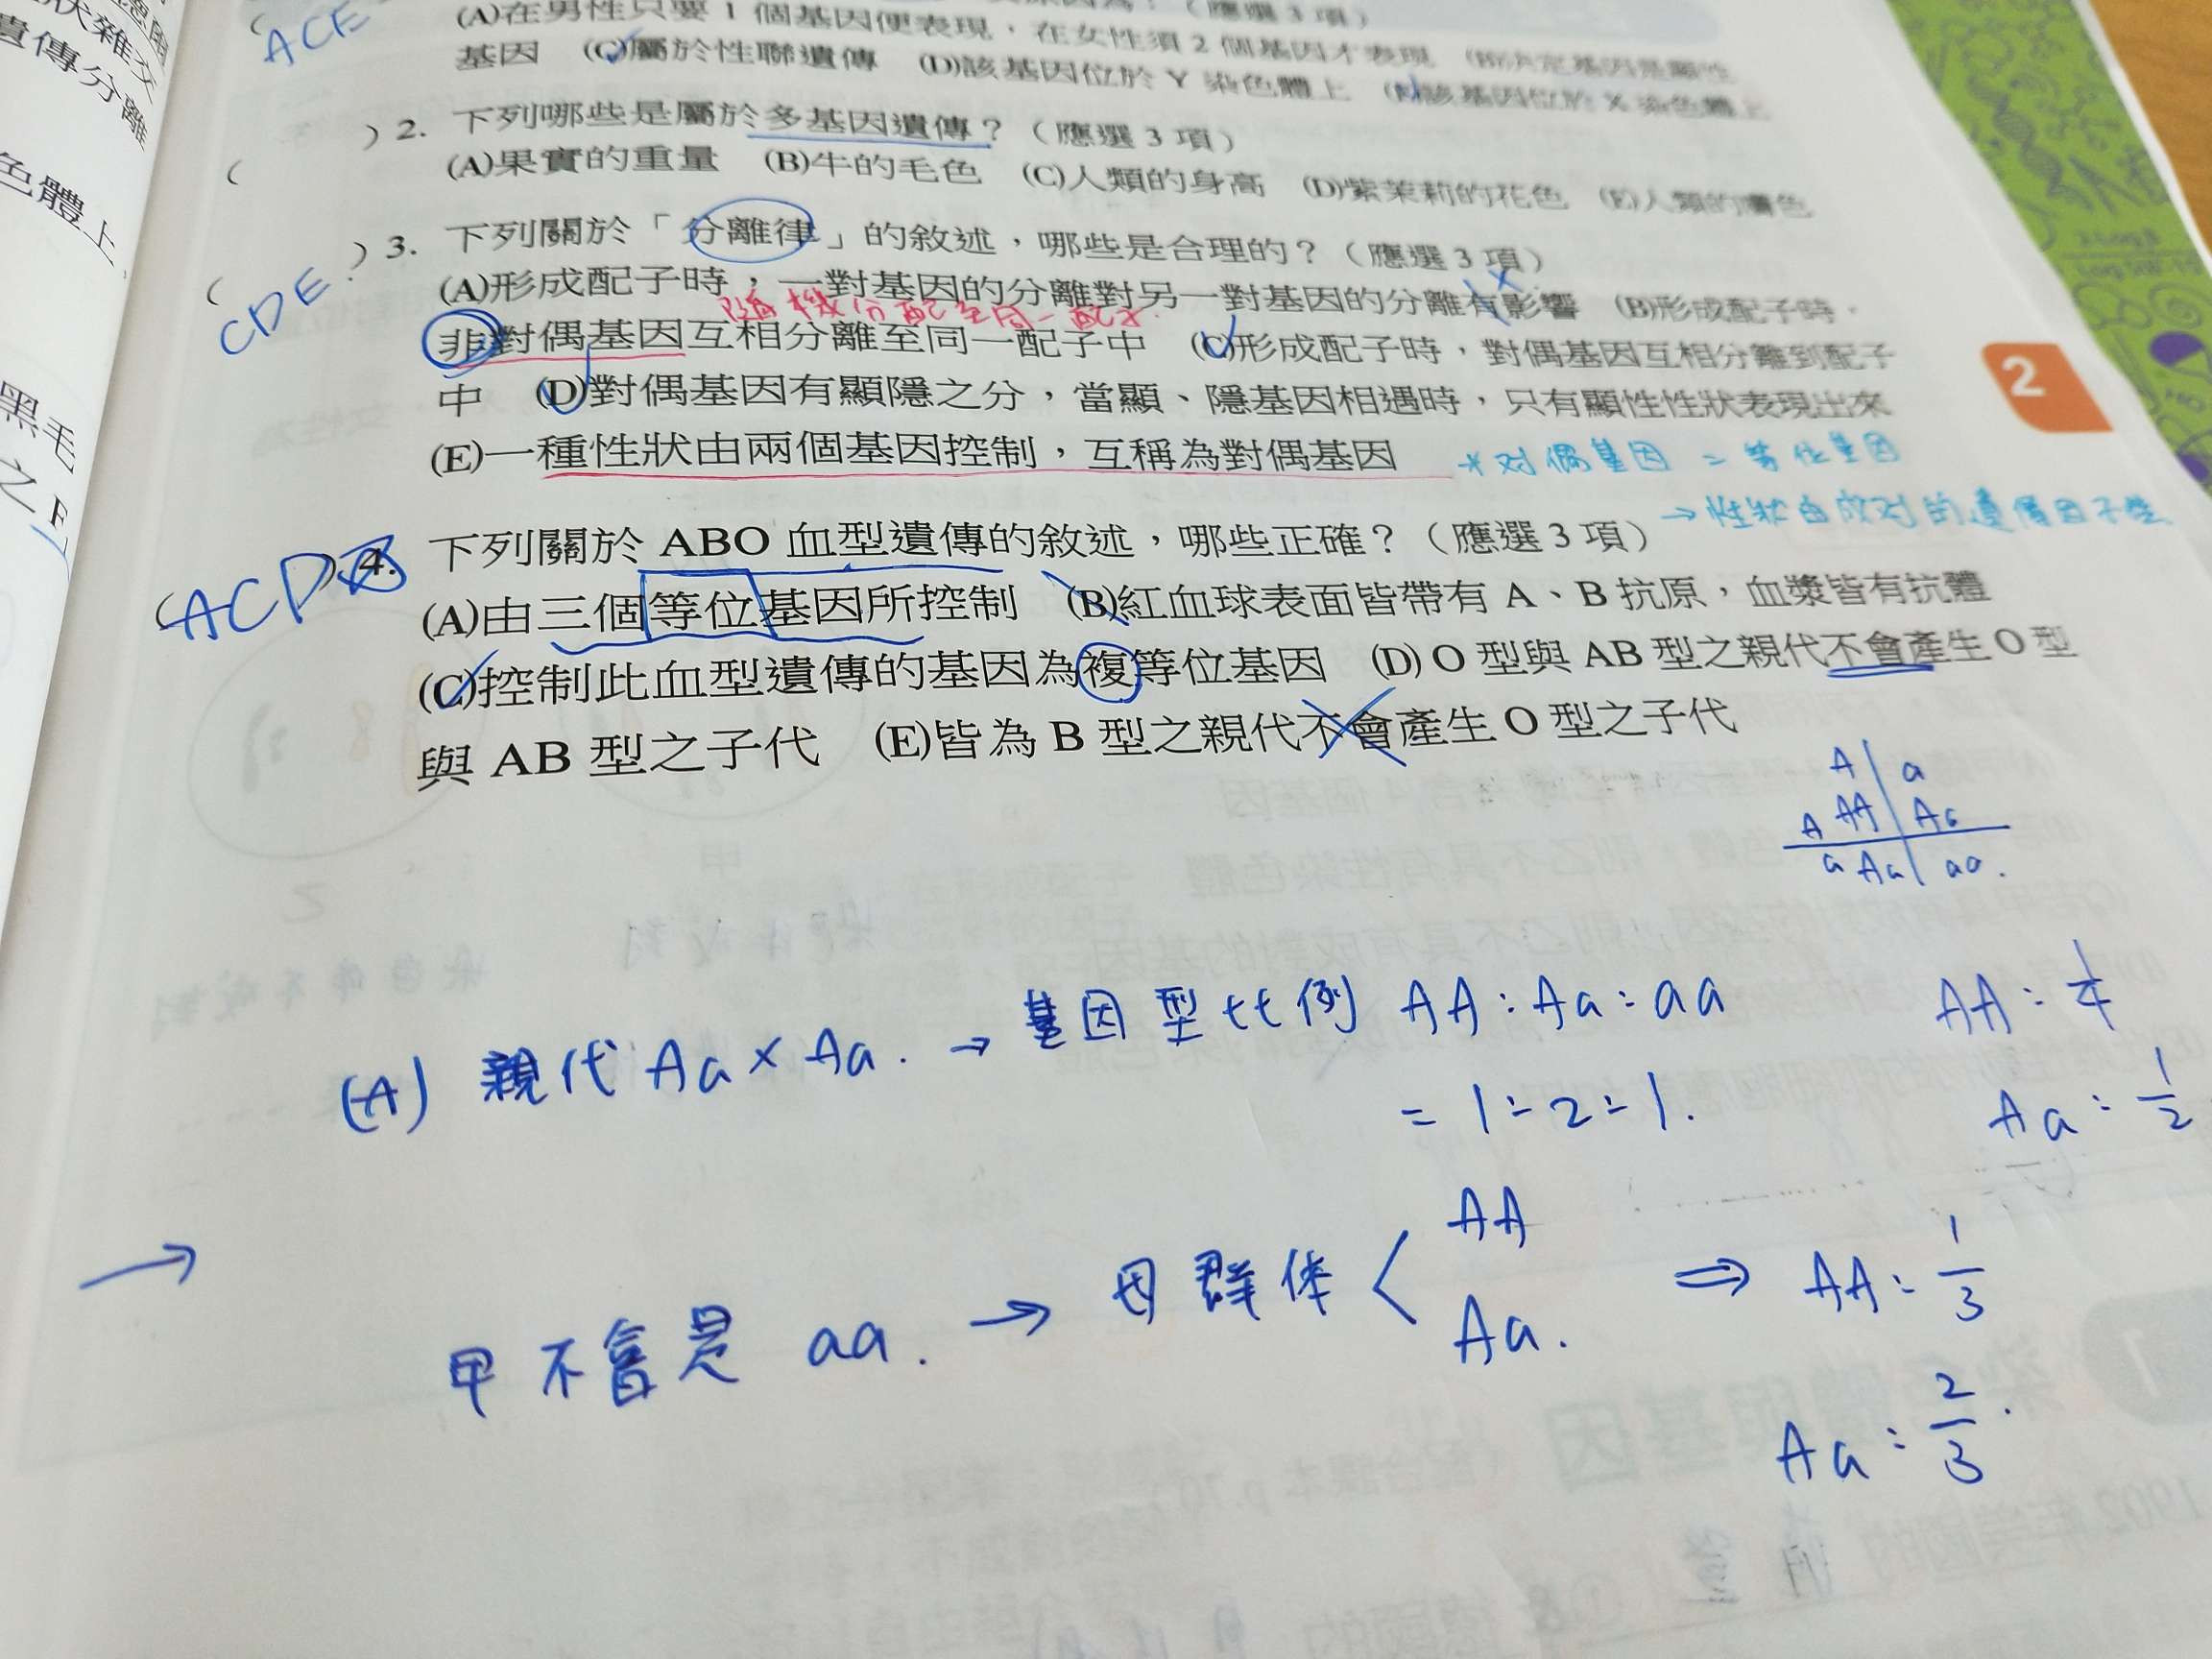 ACE
(A)在男性只要 1 個基因便表現，在女性須 2 個基因才表現 (B)決定基因是顯性
基因 (C)屬於性聯遺傳 (D)該基因位於 Y 染色體上 (E)該基因位於 X 染色體上
( ) 2. 下列哪些是屬於多基因遺傳？（應選 3 項）
(A)果實的重量 (B)牛的毛色 (C)人類的身高 (D)紫茉莉的花色 (E)人類的膚色
( CDE ) 3. 下列關於「分離律」的敘述，哪些是合理的？（應選 3 項）
(A)形成配子時，一對基因的分離對另一對基因的分離有影響 (B)形成配子時，
隨機分配至同一配子.
非對偶基因互相分離至同一配子中 (C)形成配子時，對偶基因互相分離到配子
中 (D)對偶基因有顯隱之分，當顯、隱基因相遇時，只有顯性性狀表現出來
(E)一種性狀由兩個基因控制，互稱為對偶基因
*对偶基因 = 等位基因
→性狀由成对的遺傳因子
( ACD ) 4. 下列關於 ABO 血型遺傳的敘述，哪些正確？（應選 3 項）
(A)由三個等位基因所控制 (B)紅血球表面皆帶有 A、B 抗原，血漿皆有抗體
(C)控制此血型遺傳的基因為複等位基因 (D) O 型與 AB 型之親代不會產生 O 型
與 AB 型之子代 (E)皆為 B 型之親代不會產生 O 型之子代
A a
A AA Aa
a Aa aa.
(A) 親代 Aa × Aa. → 基因型比例 AA : Aa : aa
= 1 : 2 : 1.
AA : 1/4
Aa : 1/2
→ 甲不會是 aa. → 母群体 < AA
Aa.
⇒ AA : 1/3
Aa : 2/3.
2
色體上，
遺傳分離
黑毛